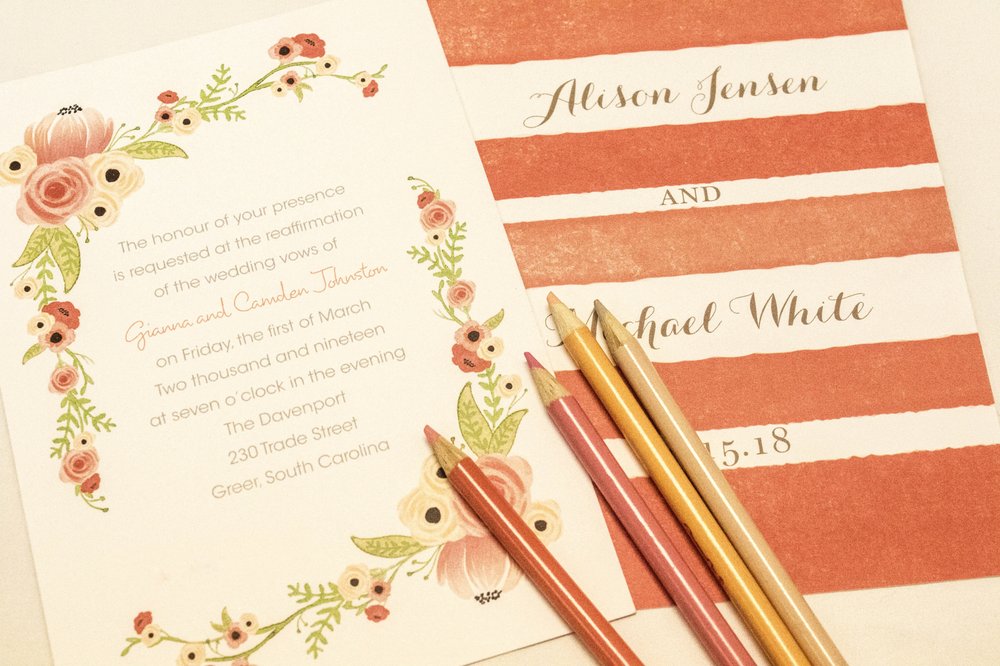 The honour of your presence
is requested at the reaffirmation
of the wedding vows of
Gianna and Camden Johnston
on Friday, the first of March
Two thousand and nineteen
at seven o'clock in the evening
The Davenport
230 Trade Street
Greer, South Carolina
Alison Jensen
AND
Michael White
15.18